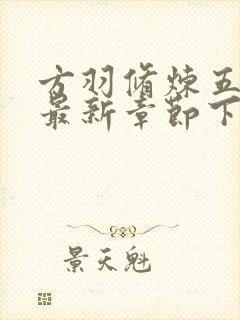 方羽修炼五
最新章節下
景天魁